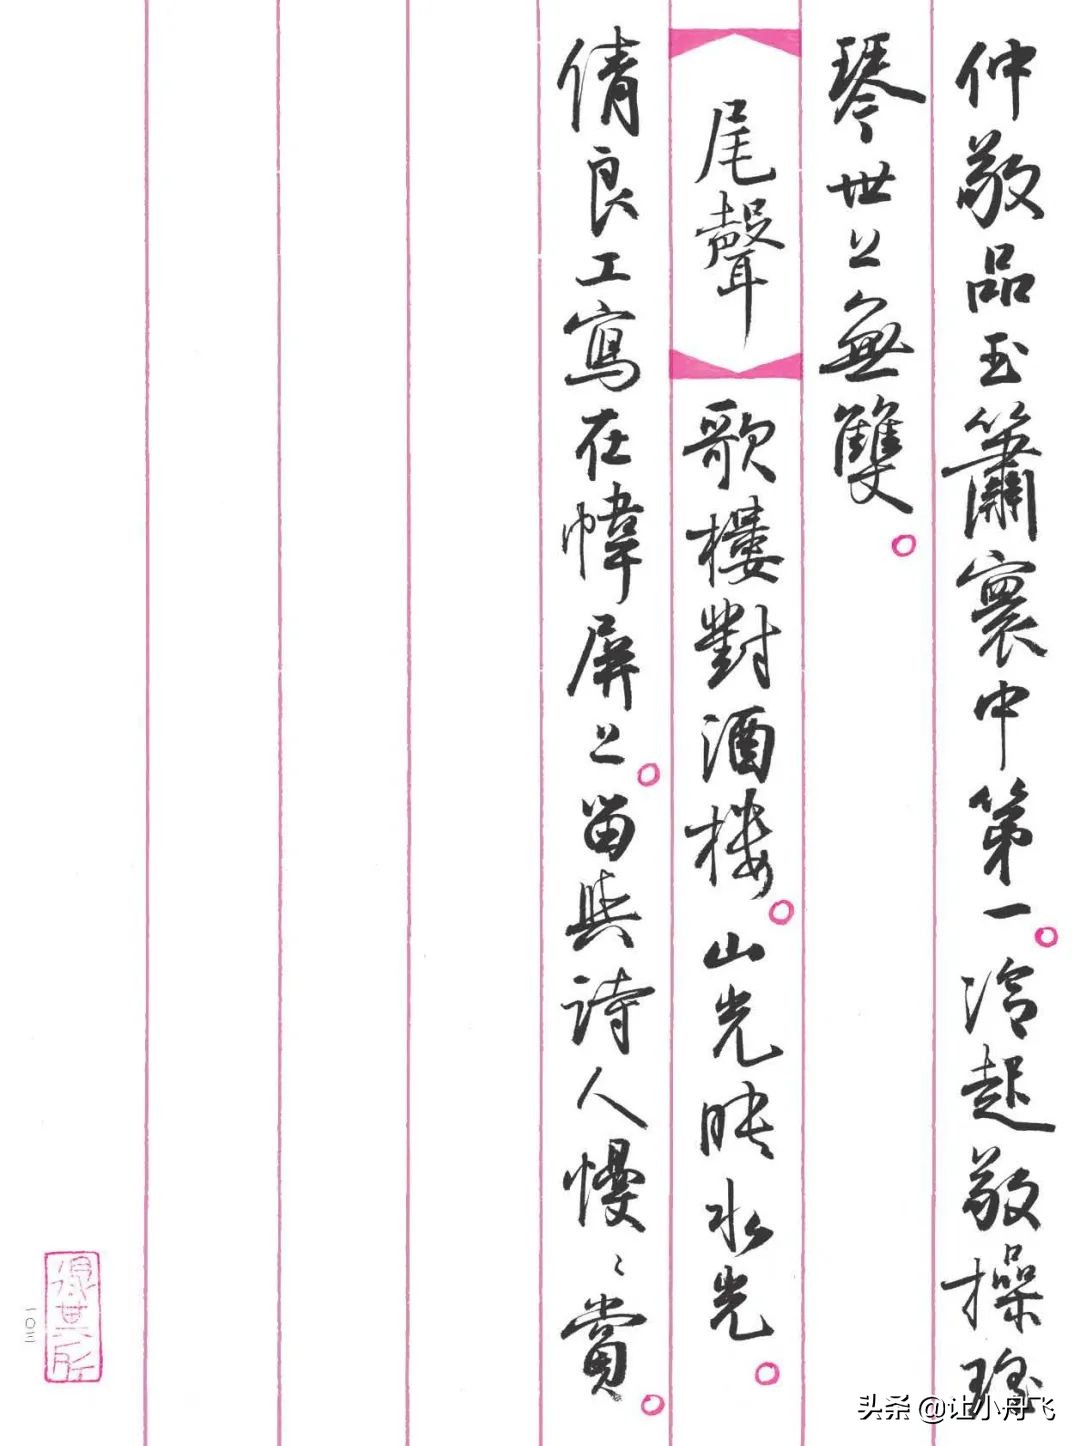 仲敬品玉簫寰中第一。冷起敬操瑤
琴世上無雙。
尾聲 歌樓對酒楼。山光映水光。
倩良工寫在幃屏上。留與詩人慢〻賞。
一〇三
头条 @让小舟飞